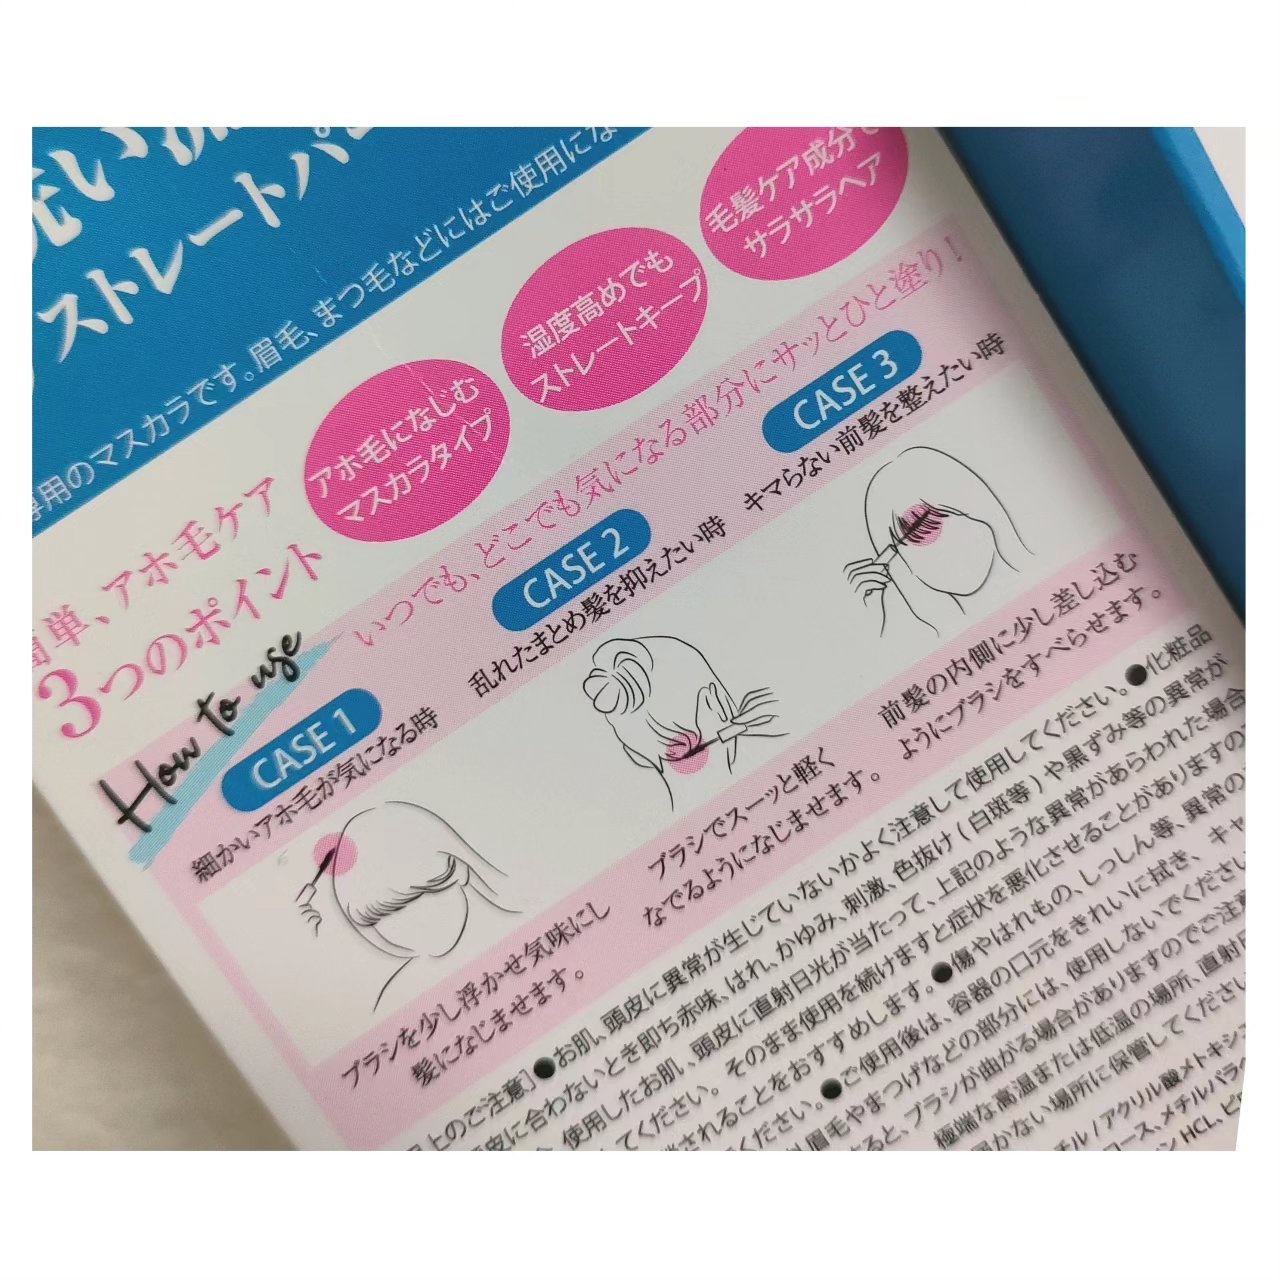 洗い流
ストレートパ
専用のマスカラです。眉毛、まつ毛などにはご使用にな
簡単、アホ毛ケア
3つのポイント
アホ毛になじむ
マスカラタイプ
湿度高めでも
ストレートキープ
毛髪ケア成分で
サラサラヘア
How to use
いつでも、どこでも気になる部分にサッとひと塗り!
CASE 1
細かいアホ毛が気になる時
ブラシを少し浮かせ気味にし
髪になじませます。
CASE 2
乱れたまとめ髪を抑えたい時
ブラシでスーッと軽く
なでるようになじませます。
CASE 3
キマらない前髪を整えたい時
前髪の内側に少し差し込む
ようにブラシをすべらせます。
上のご注意]●お肌、頭皮に異常が生じていないかよく注意して使用してください。●化粧品
皮に合わないとき即ち赤味、はれ、かゆみ、刺激、色抜け(白斑等)や黒ずみ等の異常が
使用したお肌、頭皮に直射日光が当たって、上記のような異常があらわれた場合
てください。そのまま使用を続けますと症状を悪化させることがありますので
されることをおすすめします。●傷やはれもの、しっしん等、異常の
ください。●ご使用後は、容器の口元をきれいに拭き、キャ
眉毛やまつげなどの部分には、使用しないでください
すると、ブラシが曲がる場合がありますのでご注意
極端な高温または低温の場所、直射日
届かない場所に保管してください
チル/アクリル酸メトキシ
コース、メチルパラベ
ン HCL、ピロ